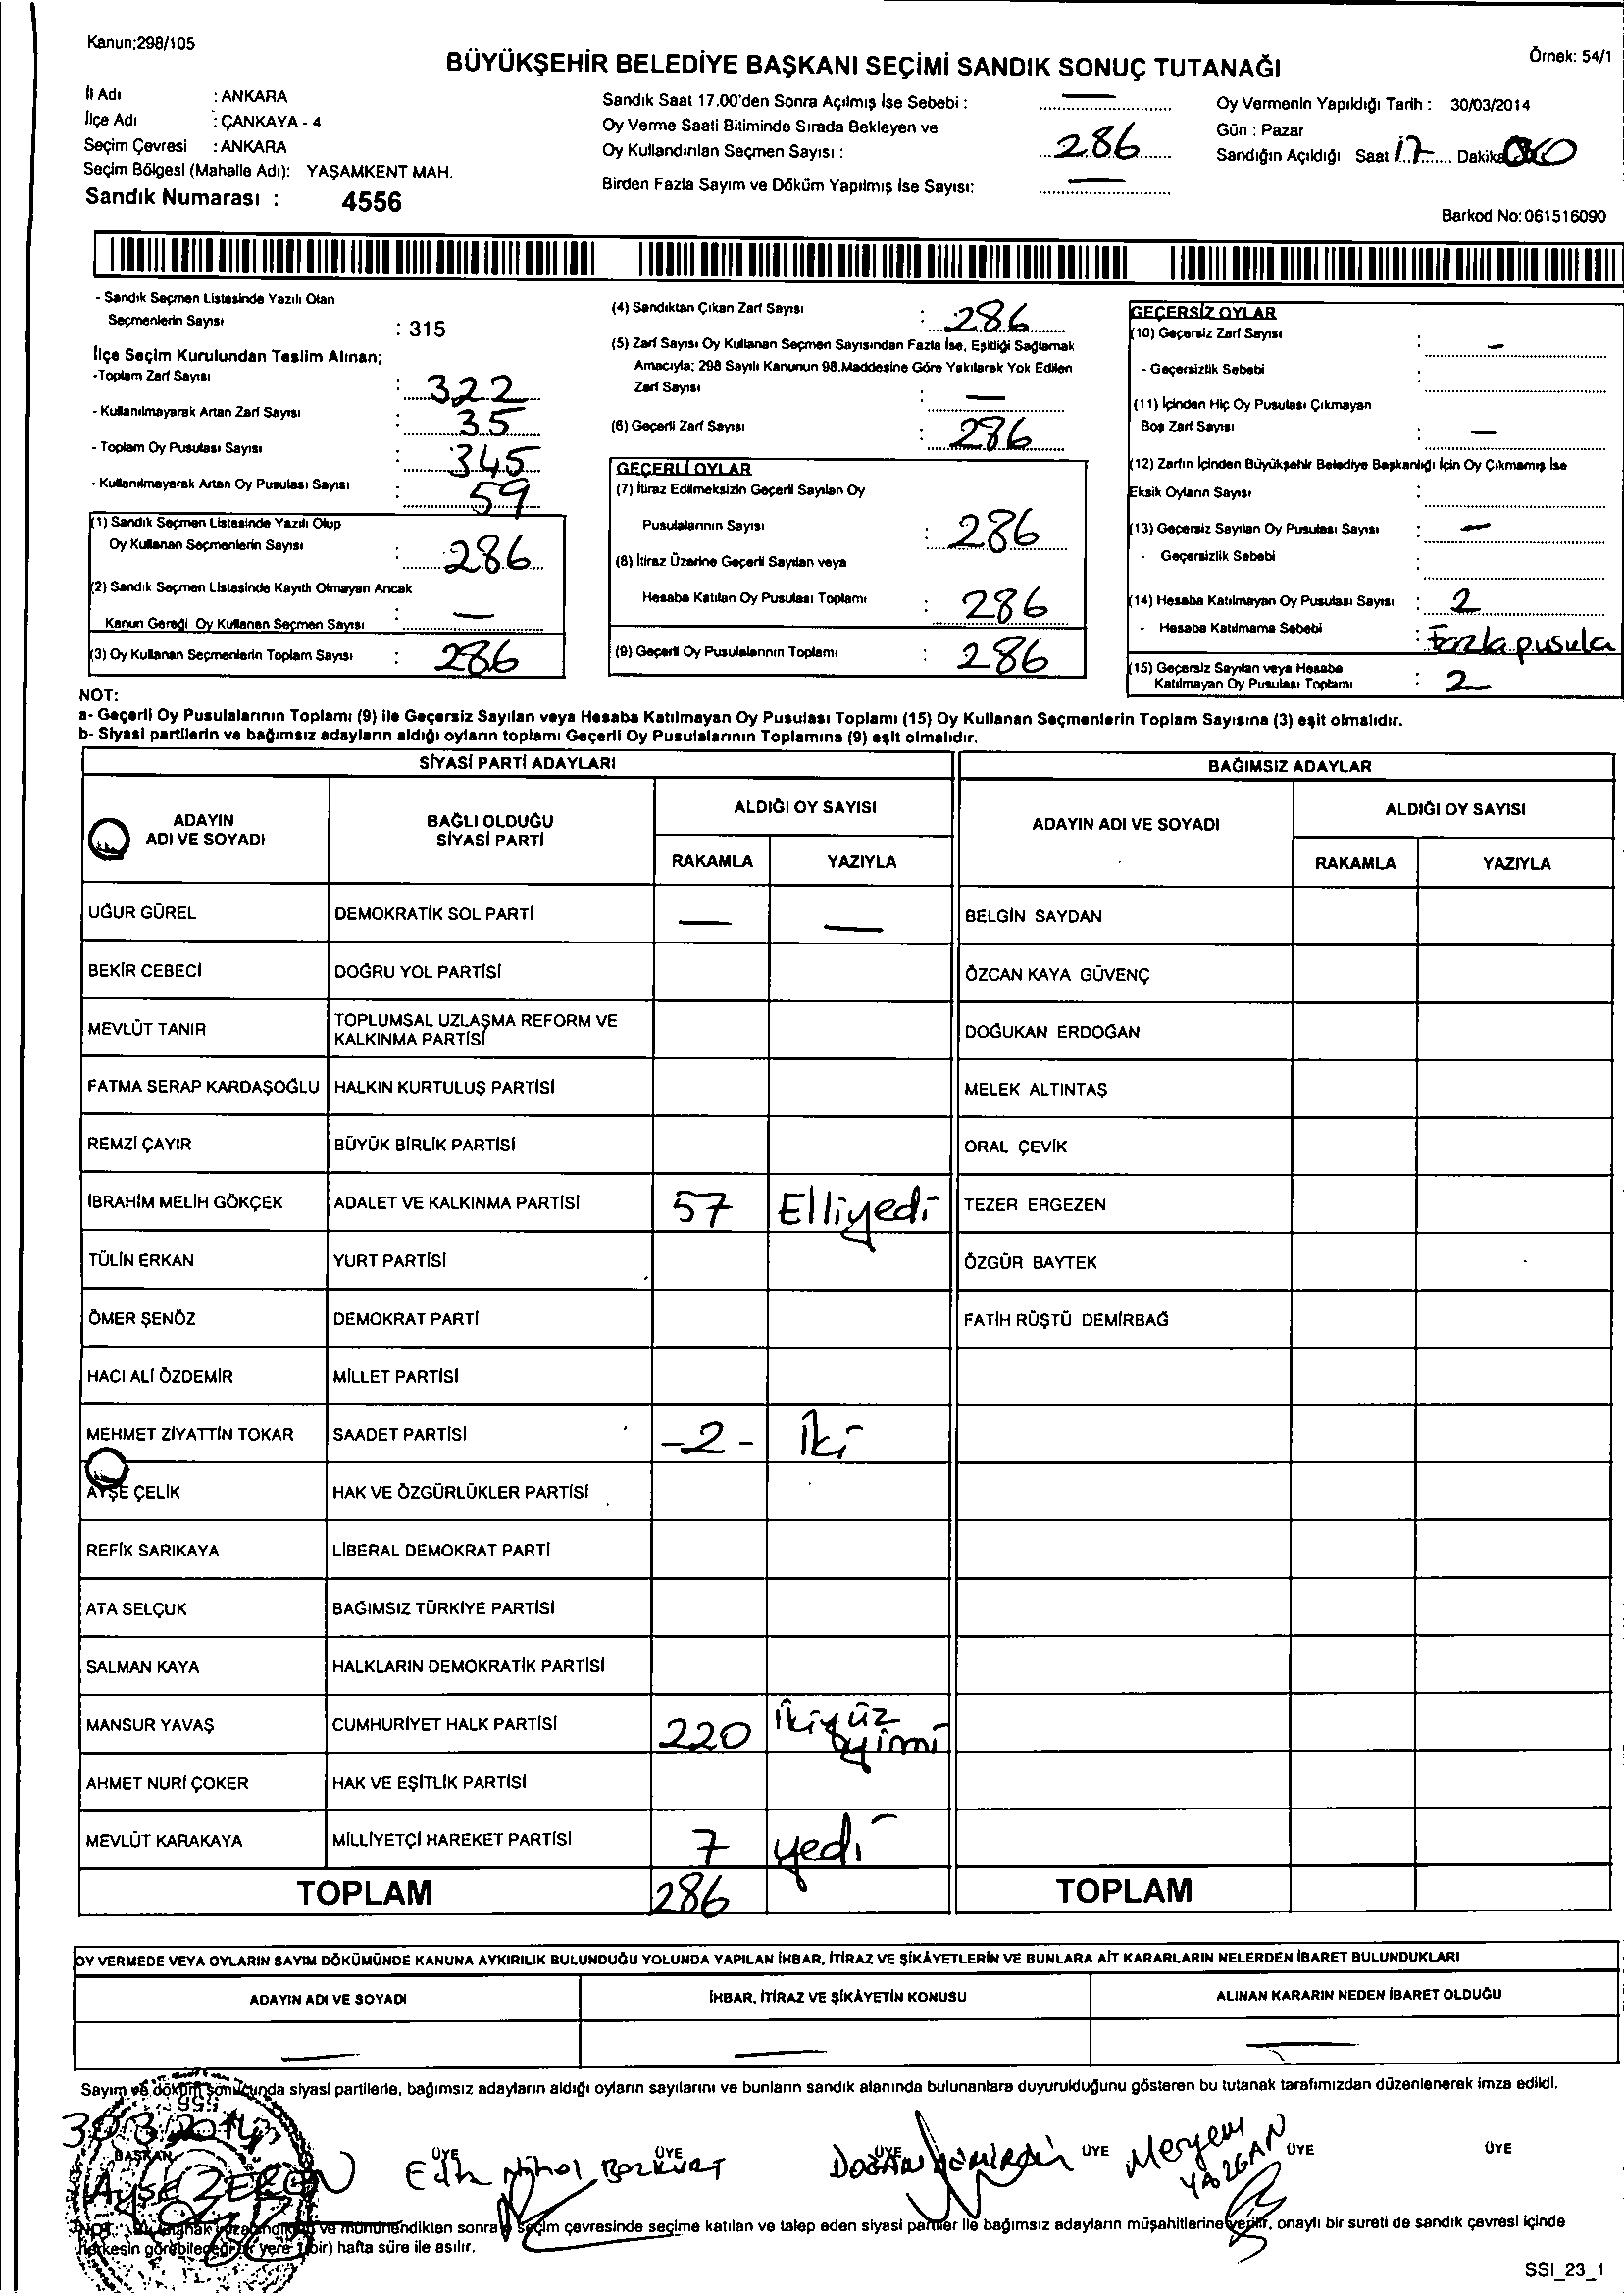 Kanun:298/105
Örnek: 54/1
BÜYÜKŞEHİR BELEDİYE BAŞKANI SEÇİMİ SANDIK SONUÇ TUTANAĞI
İl Adı : ANKARA
İlçe Adı : ÇANKAYA - 4
Seçim Çevresi : ANKARA
Seçim Bölgesi (Mahalle Adı): YAŞAMKENT MAH.
Sandık Numarası : 4556
Sandık Saat 17.00'den Sonra Açılmış İse Sebebi : —
Oy Verme Saati Bitiminde Sırada Bekleyen ve
Oy Kullandırılan Seçmen Sayısı : 286
Birden Fazla Sayım ve Döküm Yapılmış İse Sayısı: —
Oy Vermenin Yapıldığı Tarih : 30/03/2014
Gün : Pazar
Sandığın Açıldığı Saat 17 Dakika
Barkod No: 061516090
- Sandık Seçmen Listesinde Yazılı Olan
Seçmenlerin Sayısı : 315
İlçe Seçim Kurulundan Teslim Alınan;
-Toplam Zarf Sayısı : 322
- Kullanılmayarak Artan Zarf Sayısı : 35
- Toplam Oy Pusulası Sayısı : 345
- Kullanılmayarak Artan Oy Pusulası Sayısı : 59
(1) Sandık Seçmen Listesinde Yazılı Olup
Oy Kullanan Seçmenlerin Sayısı : 286
(2) Sandık Seçmen Listesinde Kayıtlı Olmayan Ancak
Kanun Gereği Oy Kullanan Seçmen Sayısı : —
(3) Oy Kullanan Seçmenlerin Toplam Sayısı : 286
(4) Sandıktan Çıkan Zarf Sayısı : 286
(5) Zarf Sayısı Oy Kullanan Seçmen Sayısından Fazla İse, Eşitliği Sağlamak
Amacıyla; 298 Sayılı Kanunun 98.Maddesine Göre Yakılarak Yok Edilen
Zarf Sayısı : —
(6) Geçerli Zarf Sayısı : 286
GEÇERLİ OYLAR
(7) İtiraz Edilmeksizin Geçerli Sayılan Oy
Pusulalarının Sayısı : 286
(8) İtiraz Üzerine Geçerli Sayılan veya
Hesaba Katılan Oy Pusulası Toplamı : 286
(9) Geçerli Oy Pusulalarının Toplamı : 286
GEÇERSİZ OYLAR
(10) Geçersiz Zarf Sayısı : —
- Geçersizlik Sebebi :
(11) İçinden Hiç Oy Pusulası Çıkmayan
Boş Zarf Sayısı : —
(12) Zarfın İçinden Büyükşehir Belediye Başkanlığı İçin Oy Çıkmamış İse
Eksik Oyların Sayısı :
(13) Geçersiz Sayılan Oy Pusulası Sayısı : —
- Geçersizlik Sebebi :
(14) Hesaba Katılmayan Oy Pusulası Sayısı : 2
- Hesaba Katılmama Sebebi : Fazla pusula
(15) Geçersiz Sayılan veya Hesaba
Katılmayan Oy Pusulası Toplamı : 2
NOT:
a- Geçerli Oy Pusulalarının Toplamı (9) ile Geçersiz Sayılan veya Hesaba Katılmayan Oy Pusulası Toplamı (15) Oy Kullanan Seçmenlerin Toplam Sayısına (3) eşit olmalıdır.
b- Siyasi partilerin ve bağımsız adayların aldığı oyların toplamı Geçerli Oy Pusulalarının Toplamına (9) eşit olmalıdır.
SİYASİ PARTİ ADAYLARI BAĞIMSIZ ADAYLAR
ADAYIN ADI VE SOYADI BAĞLI OLDUĞU SİYASİ PARTİ ALDIĞI OY SAYISI ADAYIN ADI VE SOYADI ALDIĞI OY SAYISI
RAKAMLA YAZIYLA RAKAMLA YAZIYLA
UĞUR GÜREL DEMOKRATİK SOL PARTİ — — BELGİN SAYDAN
BEKİR CEBECİ DOĞRU YOL PARTİSİ ÖZCAN KAYA GÜVENÇ
MEVLÜT TANIR TOPLUMSAL UZLAŞMA REFORM VE KALKINMA PARTİSİ DOĞUKAN ERDOĞAN
FATMA SERAP KARDAŞOĞLU HALKIN KURTULUŞ PARTİSİ MELEK ALTINTAŞ
REMZİ ÇAYIR BÜYÜK BİRLİK PARTİSİ ORAL ÇEVİK
İBRAHİM MELİH GÖKÇEK ADALET VE KALKINMA PARTİSİ 57 Elliyedi TEZER ERGEZEN
TÜLİN ERKAN YURT PARTİSİ ÖZGÜR BAYTEK
ÖMER ŞENÖZ DEMOKRAT PARTİ FATİH RÜŞTÜ DEMİRBAĞ
HACI ALİ ÖZDEMİR MİLLET PARTİSİ
MEHMET ZİYATTİN TOKAR SAADET PARTİSİ -2- İki
AYŞE ÇELİK HAK VE ÖZGÜRLÜKLER PARTİSİ
REFİK SARIKAYA LİBERAL DEMOKRAT PARTİ
ATA SELÇUK BAĞIMSIZ TÜRKİYE PARTİSİ
SALMAN KAYA HALKLARIN DEMOKRATİK PARTİSİ
MANSUR YAVAŞ CUMHURİYET HALK PARTİSİ 220 İkiyüz yirmi
AHMET NURİ ÇOKER HAK VE EŞİTLİK PARTİSİ
MEVLÜT KARAKAYA MİLLİYETÇİ HAREKET PARTİSİ 7 yedi
TOPLAM 286 TOPLAM
OY VERMEDE VEYA OYLARIN SAYIM DÖKÜMÜNDE KANUNA AYKIRILIK BULUNDUĞU YOLUNDA YAPILAN İHBAR, İTİRAZ VE ŞİKÂYETLERİN VE BUNLARA AİT KARARLARIN NELERDEN İBARET BULUNDUKLARI
ADAYIN ADI VE SOYADI İHBAR, İTİRAZ VE ŞİKÂYETİN KONUSU ALINAN KARARIN NEDEN İBARET OLDUĞU
— — —
Sayım ve döküm sonucunda siyasi partilerle, bağımsız adayların aldığı oyların sayılarını ve bunların sandık alanında bulunanlara duyurulduğunu gösteren bu tutanak tarafımızdan düzenlenerek imza edildi.
30.3.2014
BAŞKAN ÜYE ÜYE ÜYE ÜYE ÜYE ÜYE
Nihal BOZKURT DOĞAN Meryem YAZGAN
NOT: Bu tutanak ve mühürlendikten sonra seçim çevresinde seçime katılan ve talep eden siyasi partiler ile bağımsız adayların müşahitlerine verilir, onaylı bir sureti de sandık çevresi içinde
herkesin görebileceği bir yere 1(bir) hafta süre ile asılır.
SSI_23_1